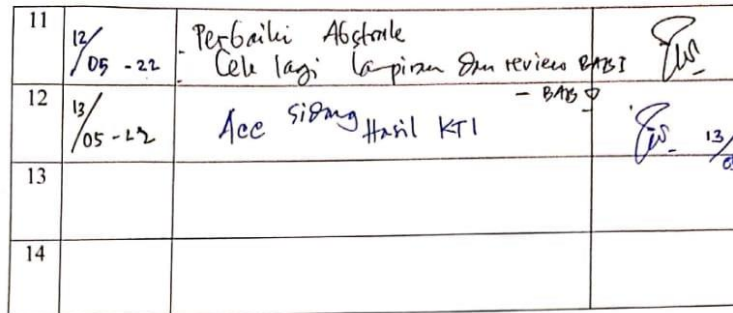 11 12/05 - 22 - Perbaiki Abstrak
- Cek lagi lampiran dan review BAB I
- BAB V
12 13/05 - 22 Acc sidang Hasil KTI 13/
13
14